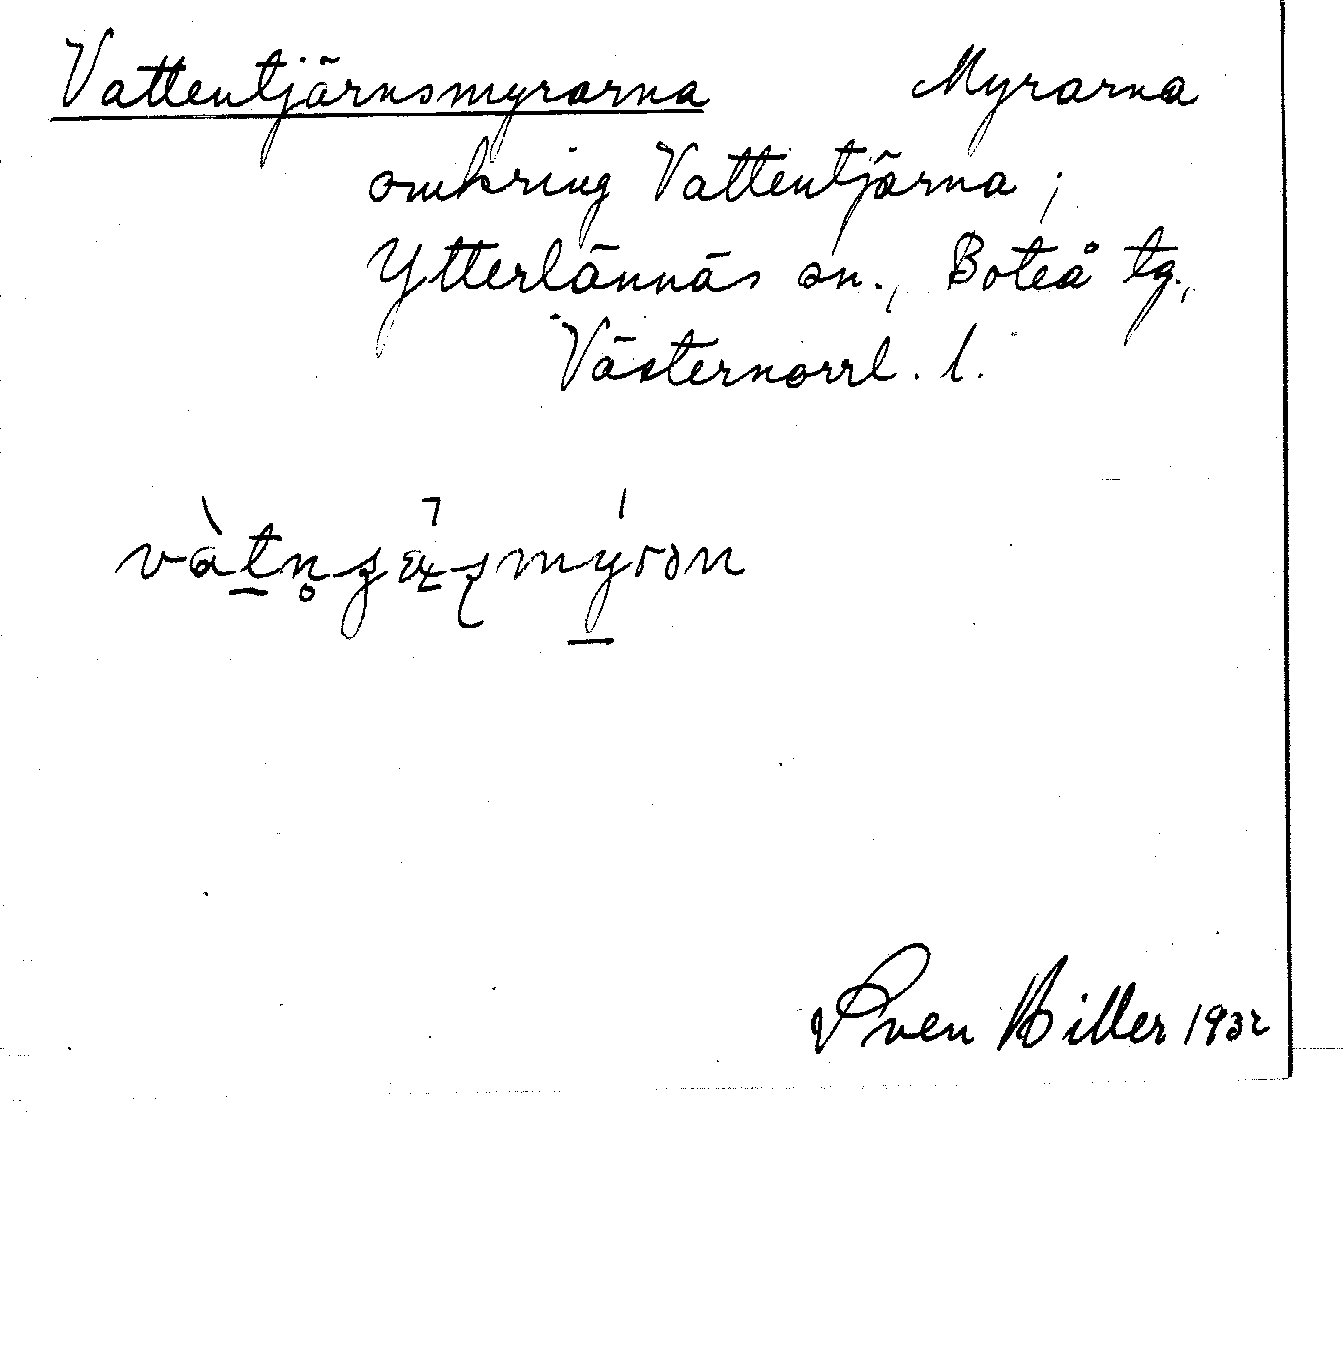 Vattentjärnsmyrarna Myrarna
omkring Vattentjärna;
Ytterlännäs sn., Boteå tg.,
Västernorrl. l.
Sven Hiller 1932